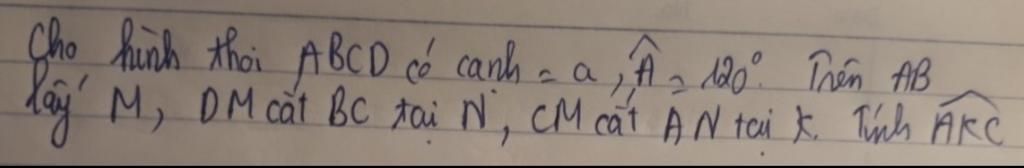 Cho hình thoi ABCD có cạnh = a, Â = 120°. Trên AB
lấy M, DM cắt BC tại N, CM cắt AN tại K. Tính AKC